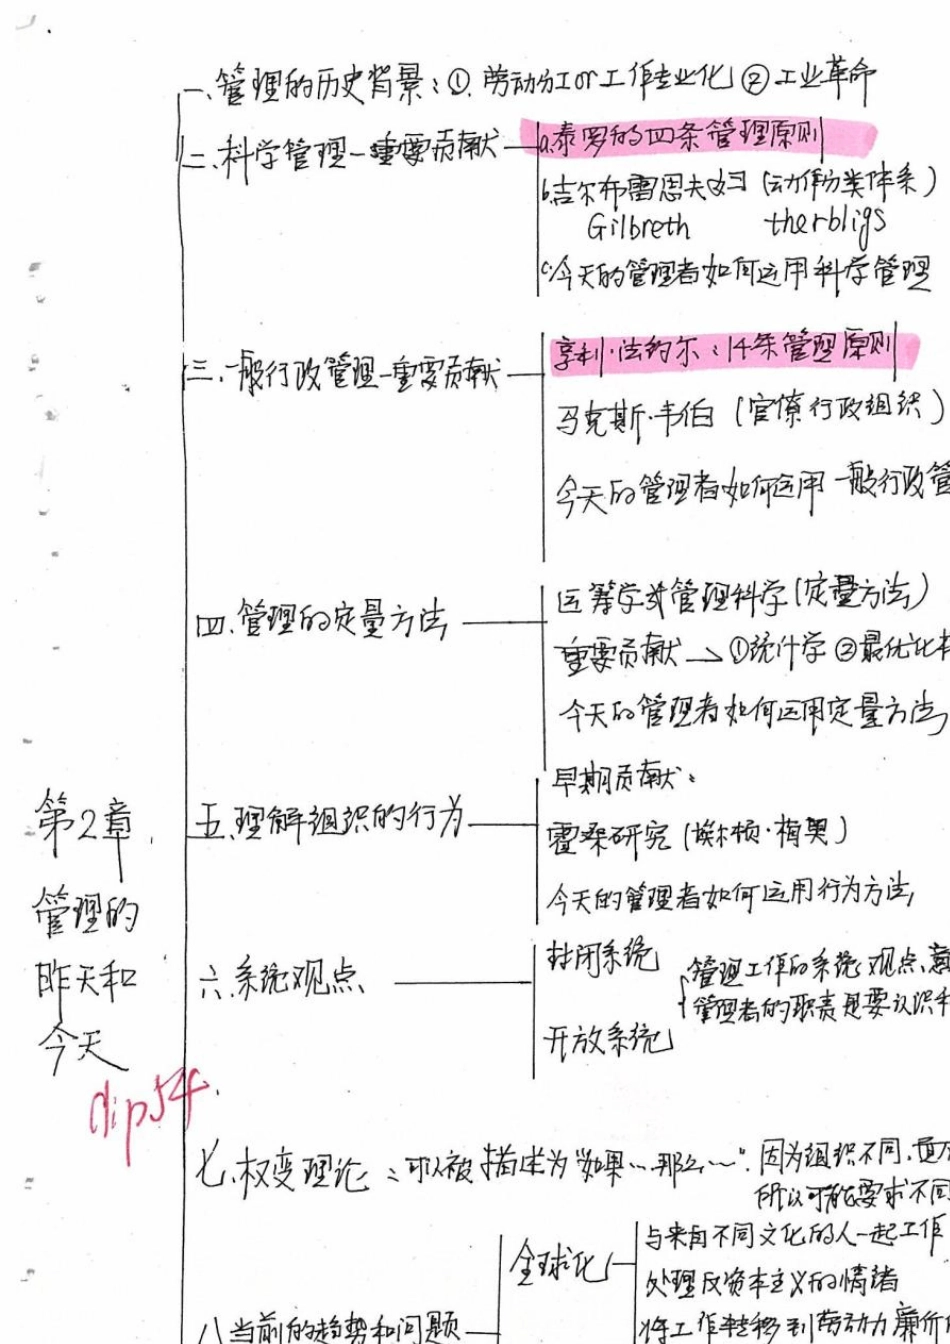 第2章
管理的
昨天和
今天
clip54
一、管理的历史背景：①. 劳动分工or工作专业化 ②工业革命
二、科学管理-重要贡献
a.泰罗的四条管理原则
b.吉尔布雷思夫妇 (动作分类体系)
Gilbreth therbligs
c.今天的管理者如何运用科学管理
三、一般行政管理-重要贡献
亨利·法约尔：14条管理原则
马克斯·韦伯 (官僚行政组织)
今天的管理者如何运用一般行政管
四、管理的定量方法
运筹学或管理科学(定量方法)
重要贡献→①统计学②最优化
今天的管理者如何运用定量方法
五、理解组织的行为
早期贡献：
霍桑研究 (埃尔顿·梅奥)
今天的管理者如何运用行为方法
六、系统观点
封闭系统
开放系统
管理工作的系统观点，意
管理者的职责是要认识和
七、权变理论：可以被描述为“如果…那么…”. 因为组织不同，面
所以可能要求不同
八、当前的趋势和问题
全球化
与来自不同文化的人一起工作
处理反资本主义的情绪
将工作转移到劳动力廉价